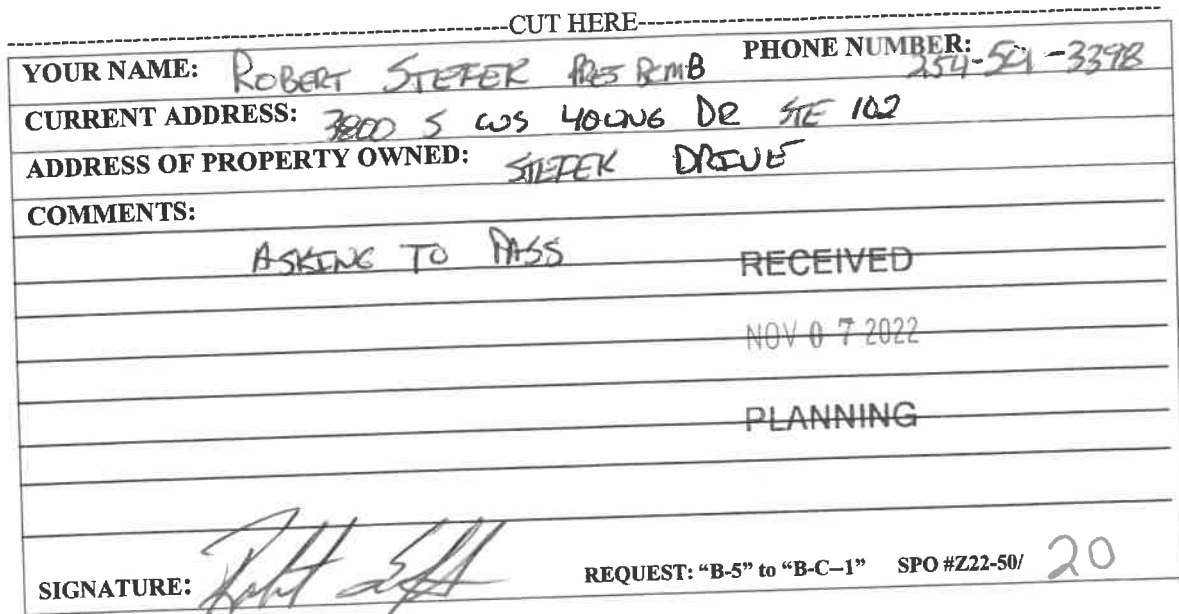 CUT HERE
YOUR NAME: ROBERT STEFEK PRES BCMB PHONE NUMBER: 254-501-3398
CURRENT ADDRESS: 3800 S WS YOUNG DR STE 102
ADDRESS OF PROPERTY OWNED: STEFEK DRIVE
COMMENTS:
ASKING TO PASS RECEIVED
NOV 07 2022
PLANNING
SIGNATURE: REQUEST: “B-5” to “B-C–1” SPO #Z22-50/ 20